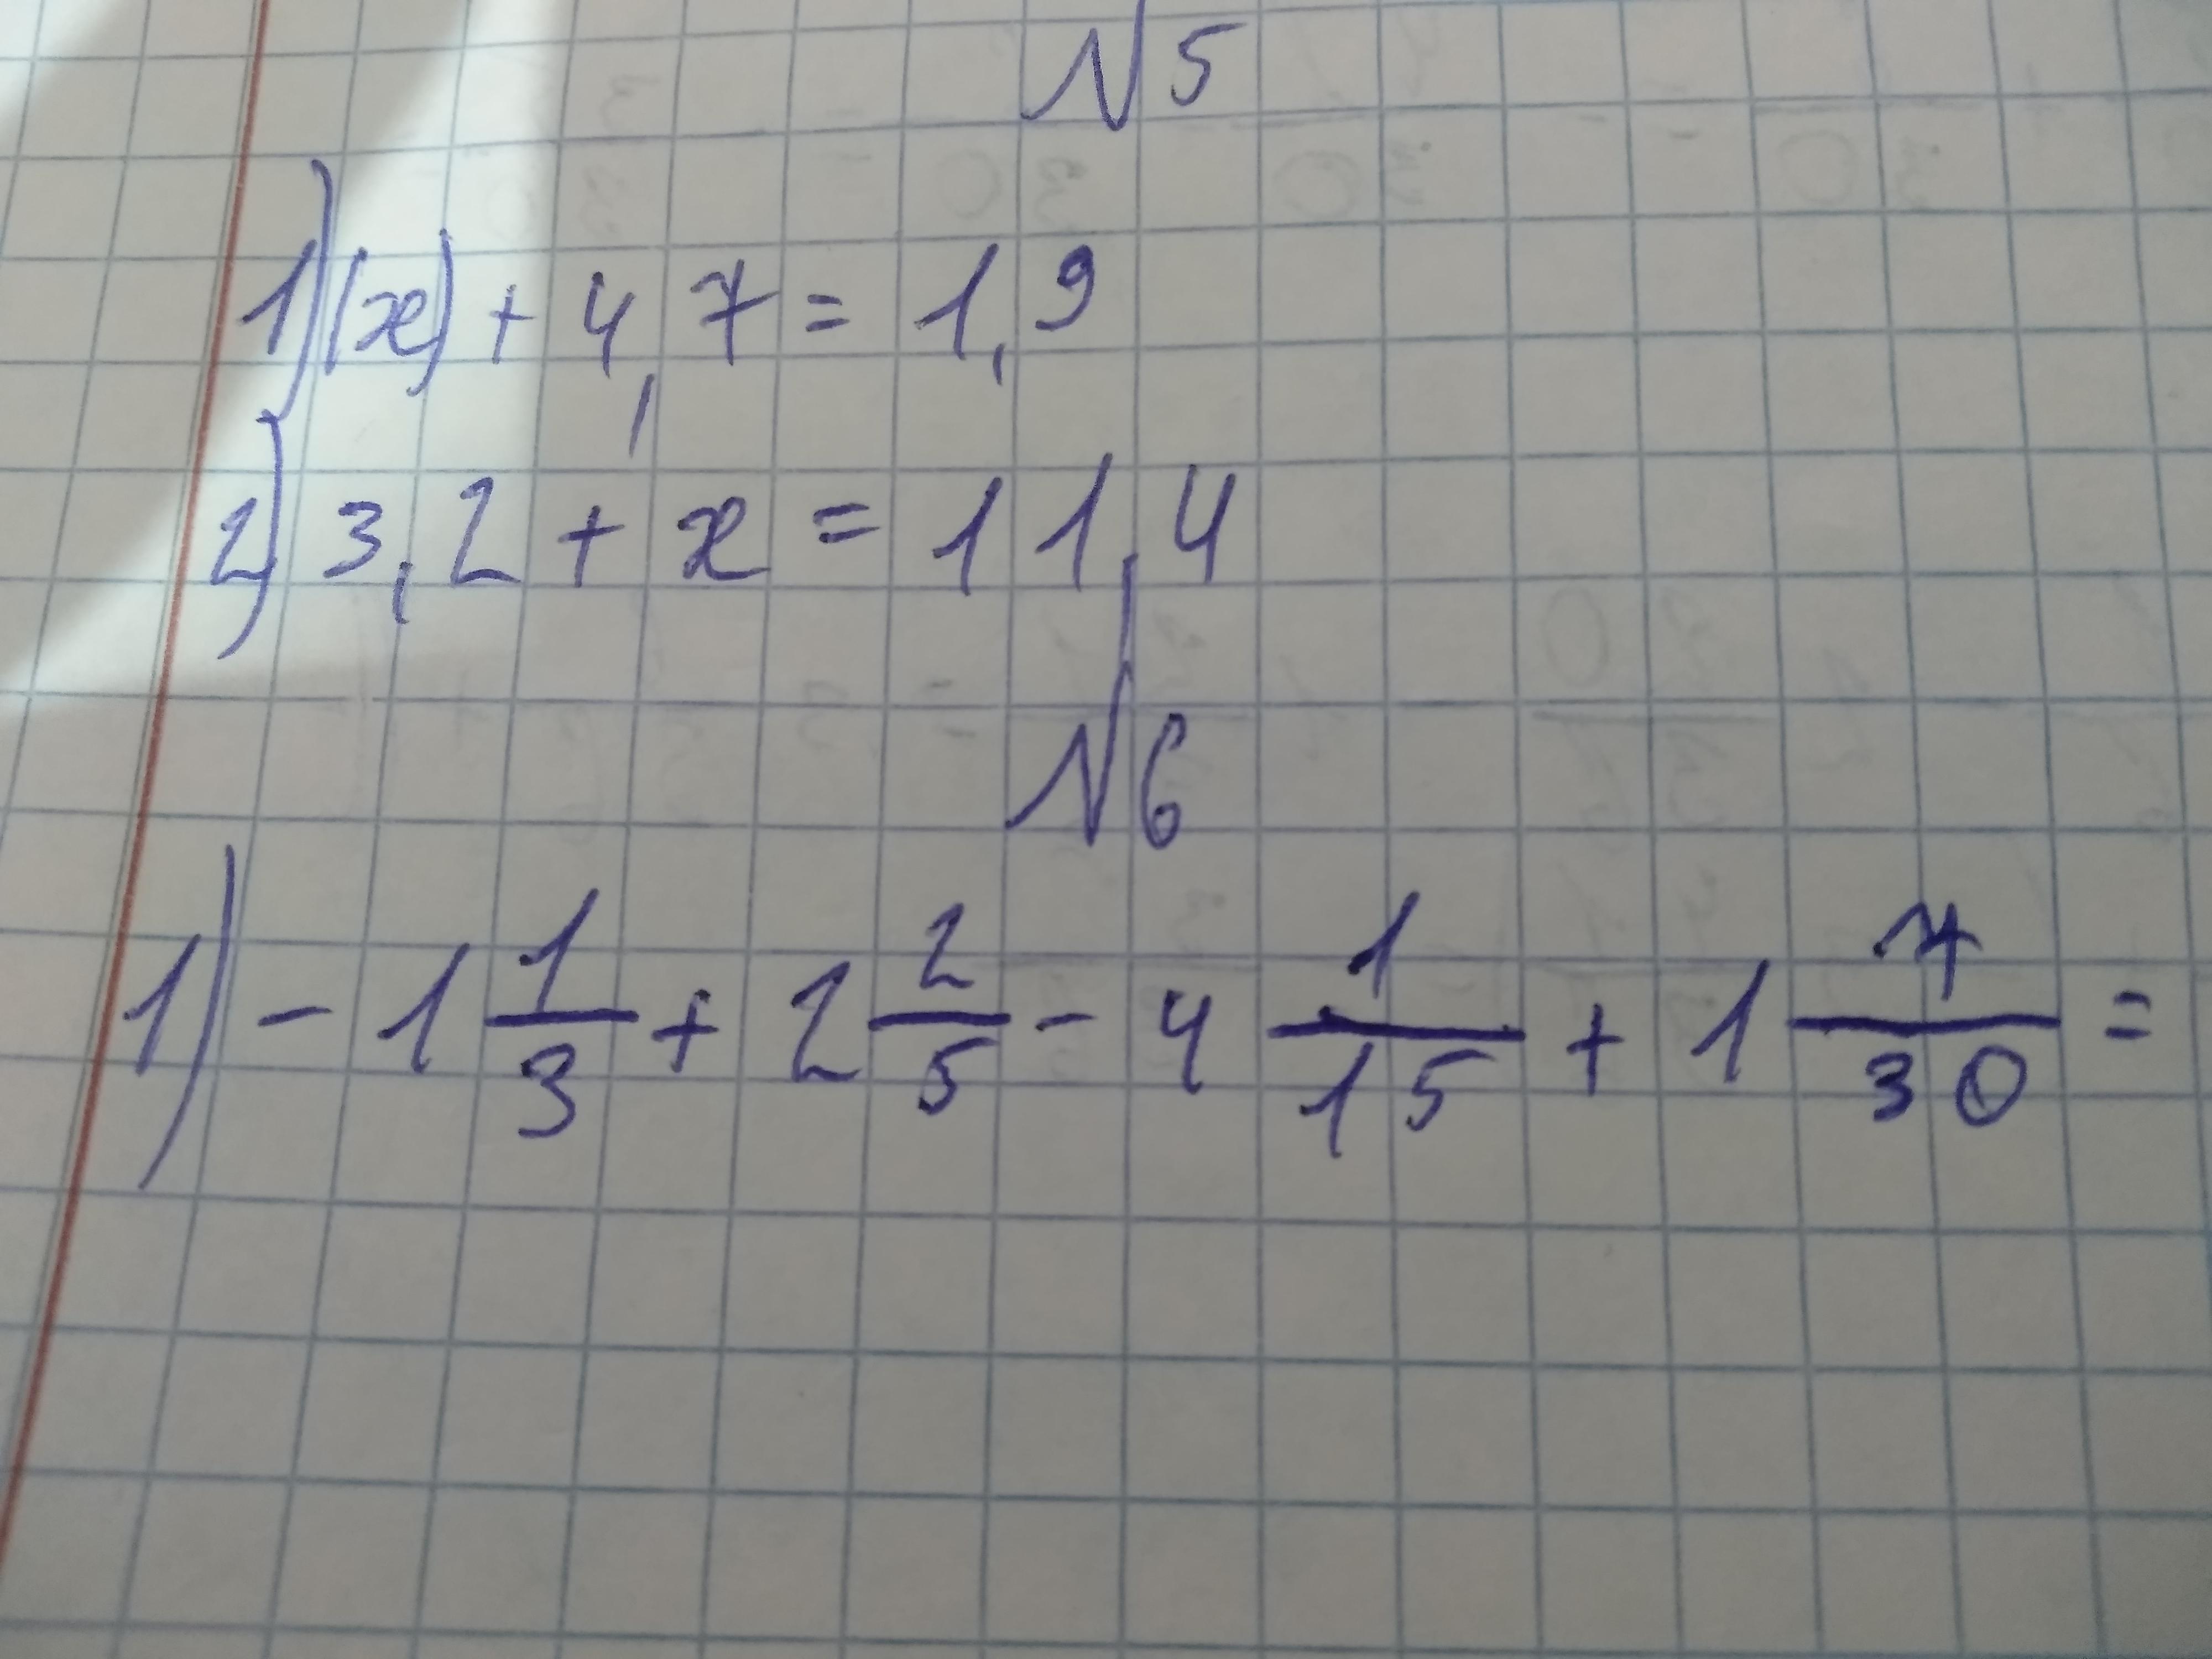 №5
1) (x) + 4,7 = 1,9
2) 3,2 + x = 11,4
№6
1) - 1 1/3 + 2 2/5 - 4 1/15 + 1 7/30 =